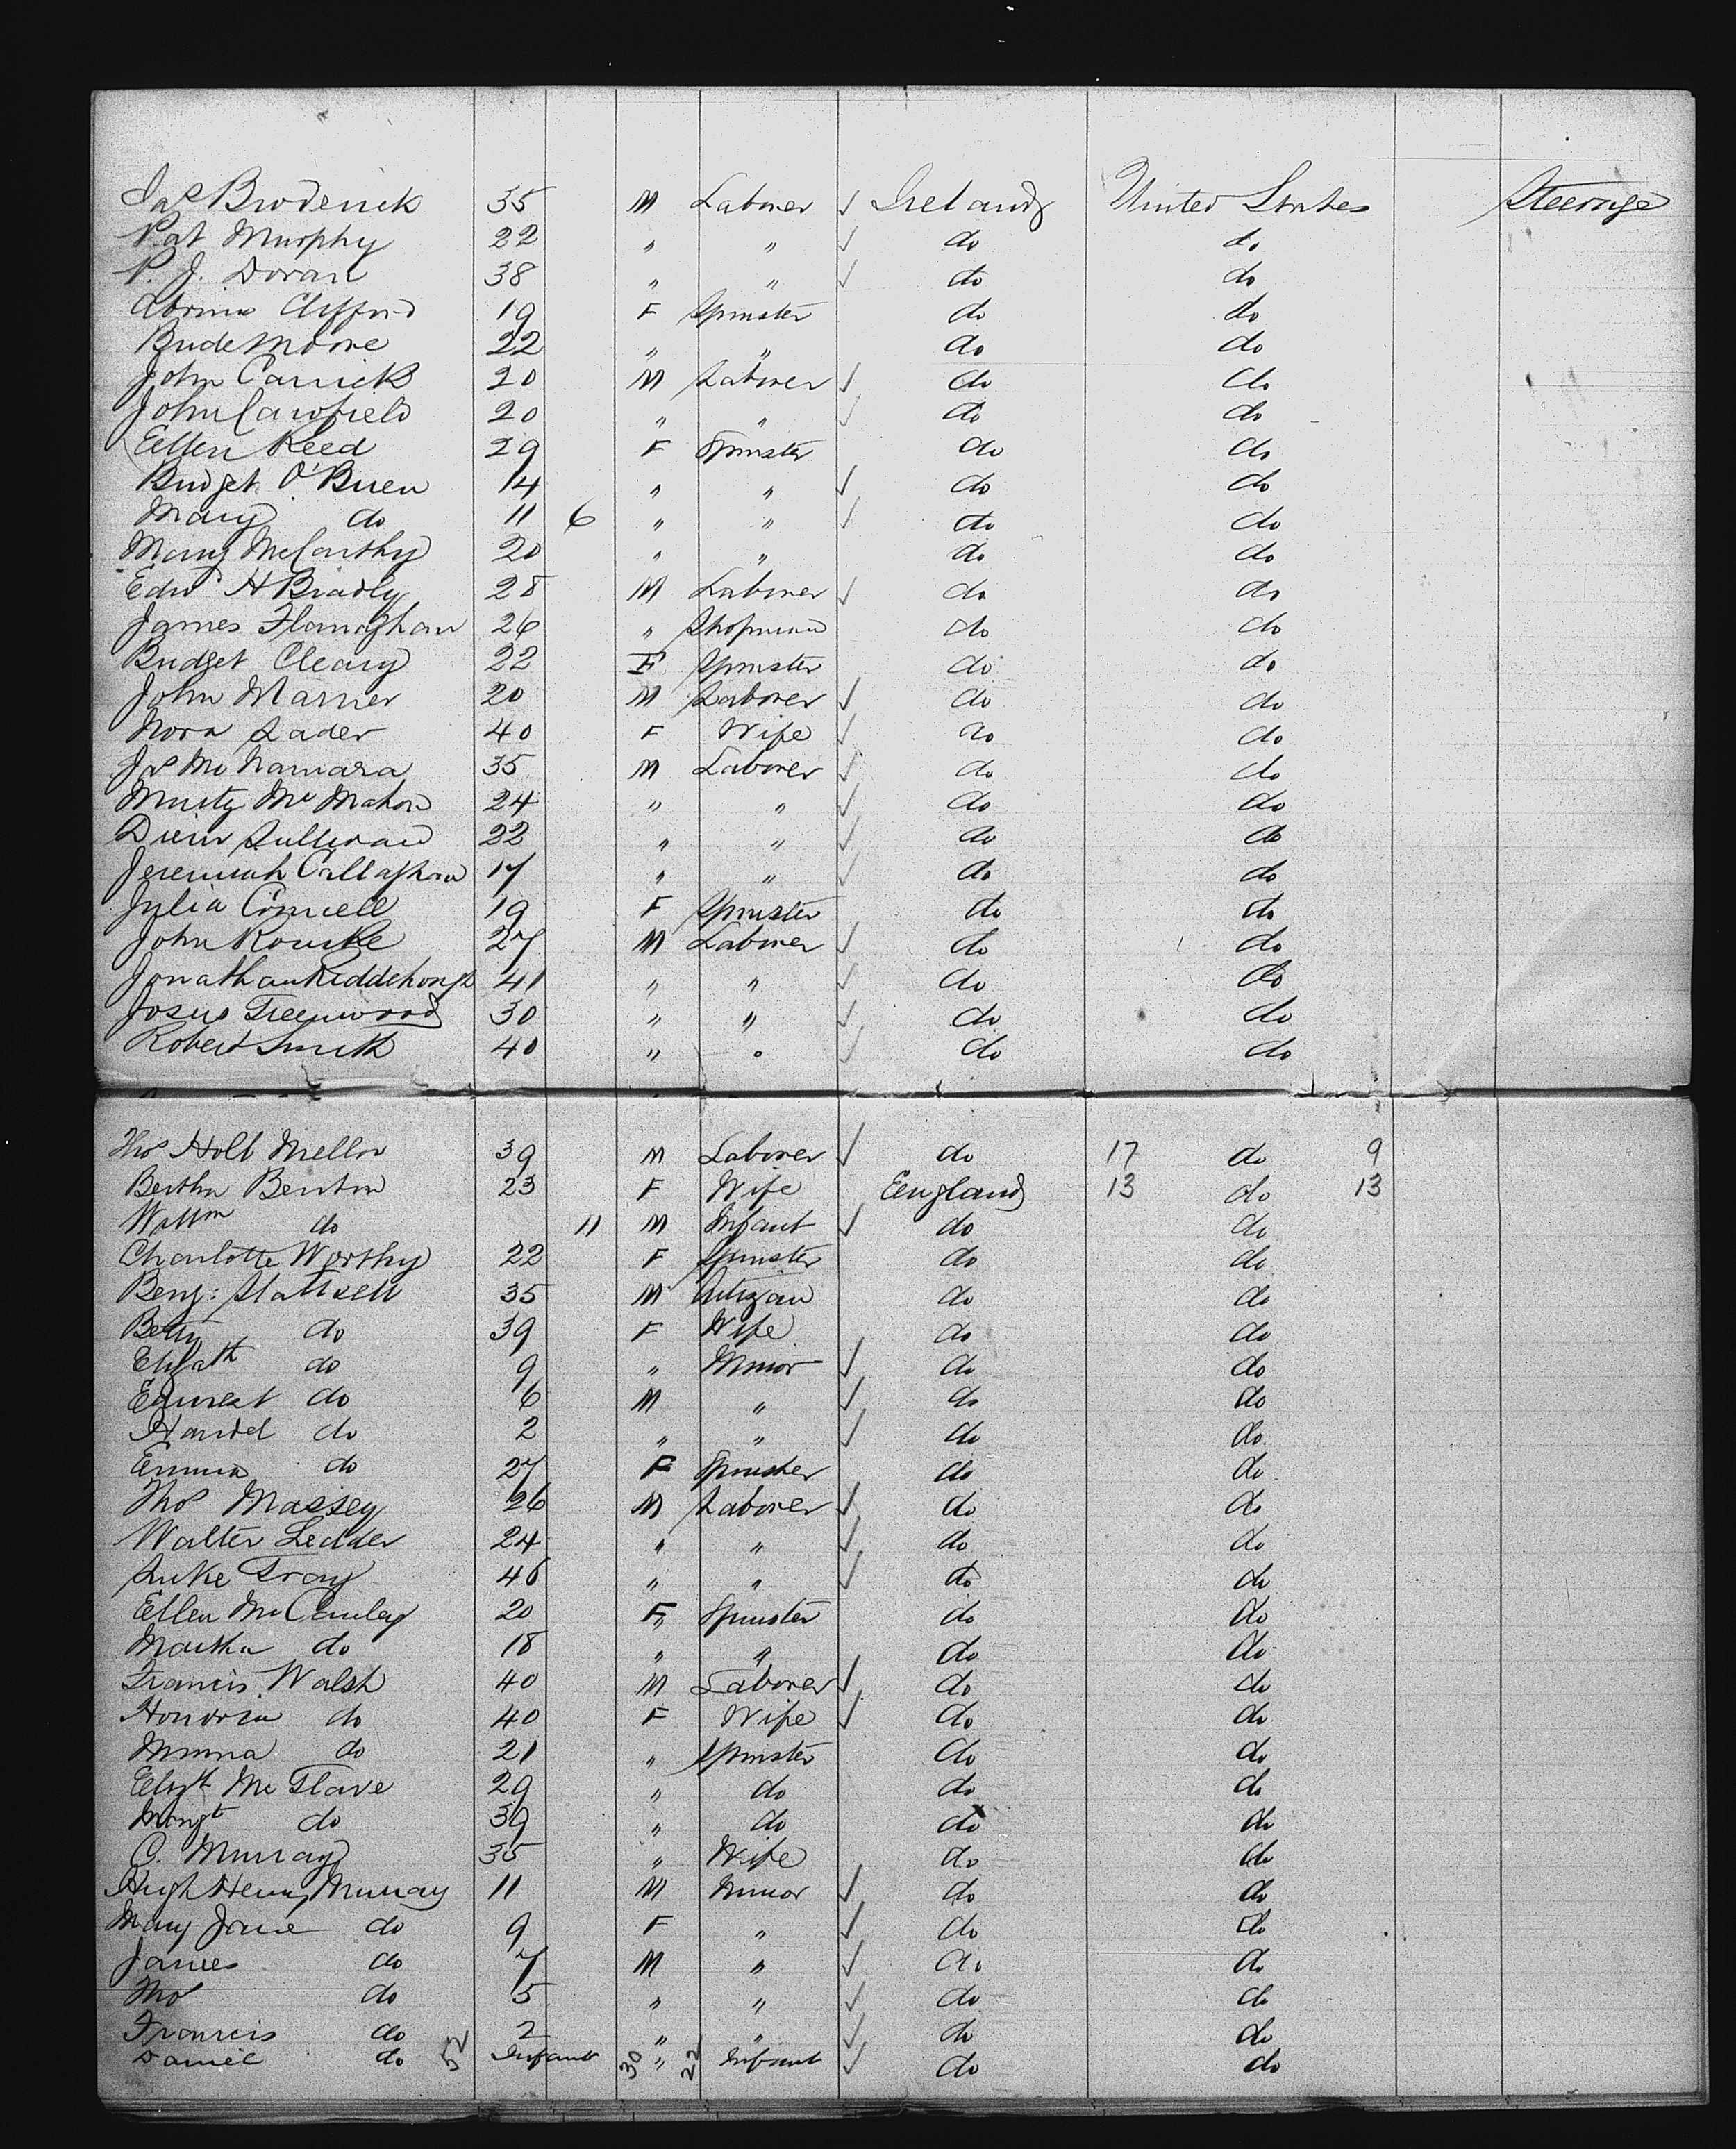 Jas Broderick 35 M Laborer ✓ Ireland United States Steerage
Pat Murphy 22 " " ✓ do do
P. J. Doran 38 " " ✓ do do
Clifford 19 F Spinster do do
Bride Moore 22 " " do do
John Carrick 20 M Laborer ✓ do do
John Cawfield 20 " " ✓ do do
Ellen Reed 29 F Spinster do do
Bridget O'Brien 14 " " ✓ do do
Mary do 11 6 " " ✓ do do
Mary McCarthy 20 " " do do
Edwd H Bradly 28 M Laborer ✓ do do
James Flanaghan 26 " Shopman do do
Bridget Cleary 22 F Spinster do do
John Marner 20 M Laborer ✓ do do
Nora Lader 40 F Wife ✓ do do
Jas McNamara 35 M Laborer ✓ do do
Murty McMahon 24 " " ✓ do do
Sullivan 22 " " ✓ do do
Jeremiah Callaghan 17 " " ✓ do do
Julia Connell 19 F Spinster do do
John Rourke 27 M Laborer ✓ do do
Jonathan Riddehough 41 " " ✓ do do
Greenwood 30 " " ✓ do do
Robert Smith 40 " " ✓ do do
Thos Holt Mellor 39 M Laborer ✓ do 17 do 9
Bertha Benton 23 F Wife Eengland 13 do 13
Willm do 11 M Infant ✓ do do
Charlotte Worthy 22 F Spinster do do
Benj: 35 M Artizan do do
Betty do 39 F Wife do do
Elizath do 9 " Minor ✓ do do
Earnest do 6 M " ✓ do do
Handel do 2 " " ✓ do do
Emma do 27 F Spinster do do
Thos Massey 26 M Laborer ✓ do do
Walter Ledder 24 " " ✓ do do
Luke 46 " " ✓ do do
Ellen McCauley 20 F " Spinster do do
Martha do 18 " " do do
Francis Walsh 40 M Laborer ✓ do do
Honoria do 40 F Wife ✓ do do
Minna do 21 " Spinster do do
Elizt McGlave 29 " do do do
Margt do 39 " do do do
C. Murray 35 " Wife do do
Hugh Henry Murray 11 M Minor ✓ do do
Mary Jane do 9 F " ✓ do do
James do 7 M " ✓ do do
Thos do 5 " " ✓ do do
Francis do 2 " " ✓ do do
Daniel do 52 Infant 30 " 22 Infant ✓ do do